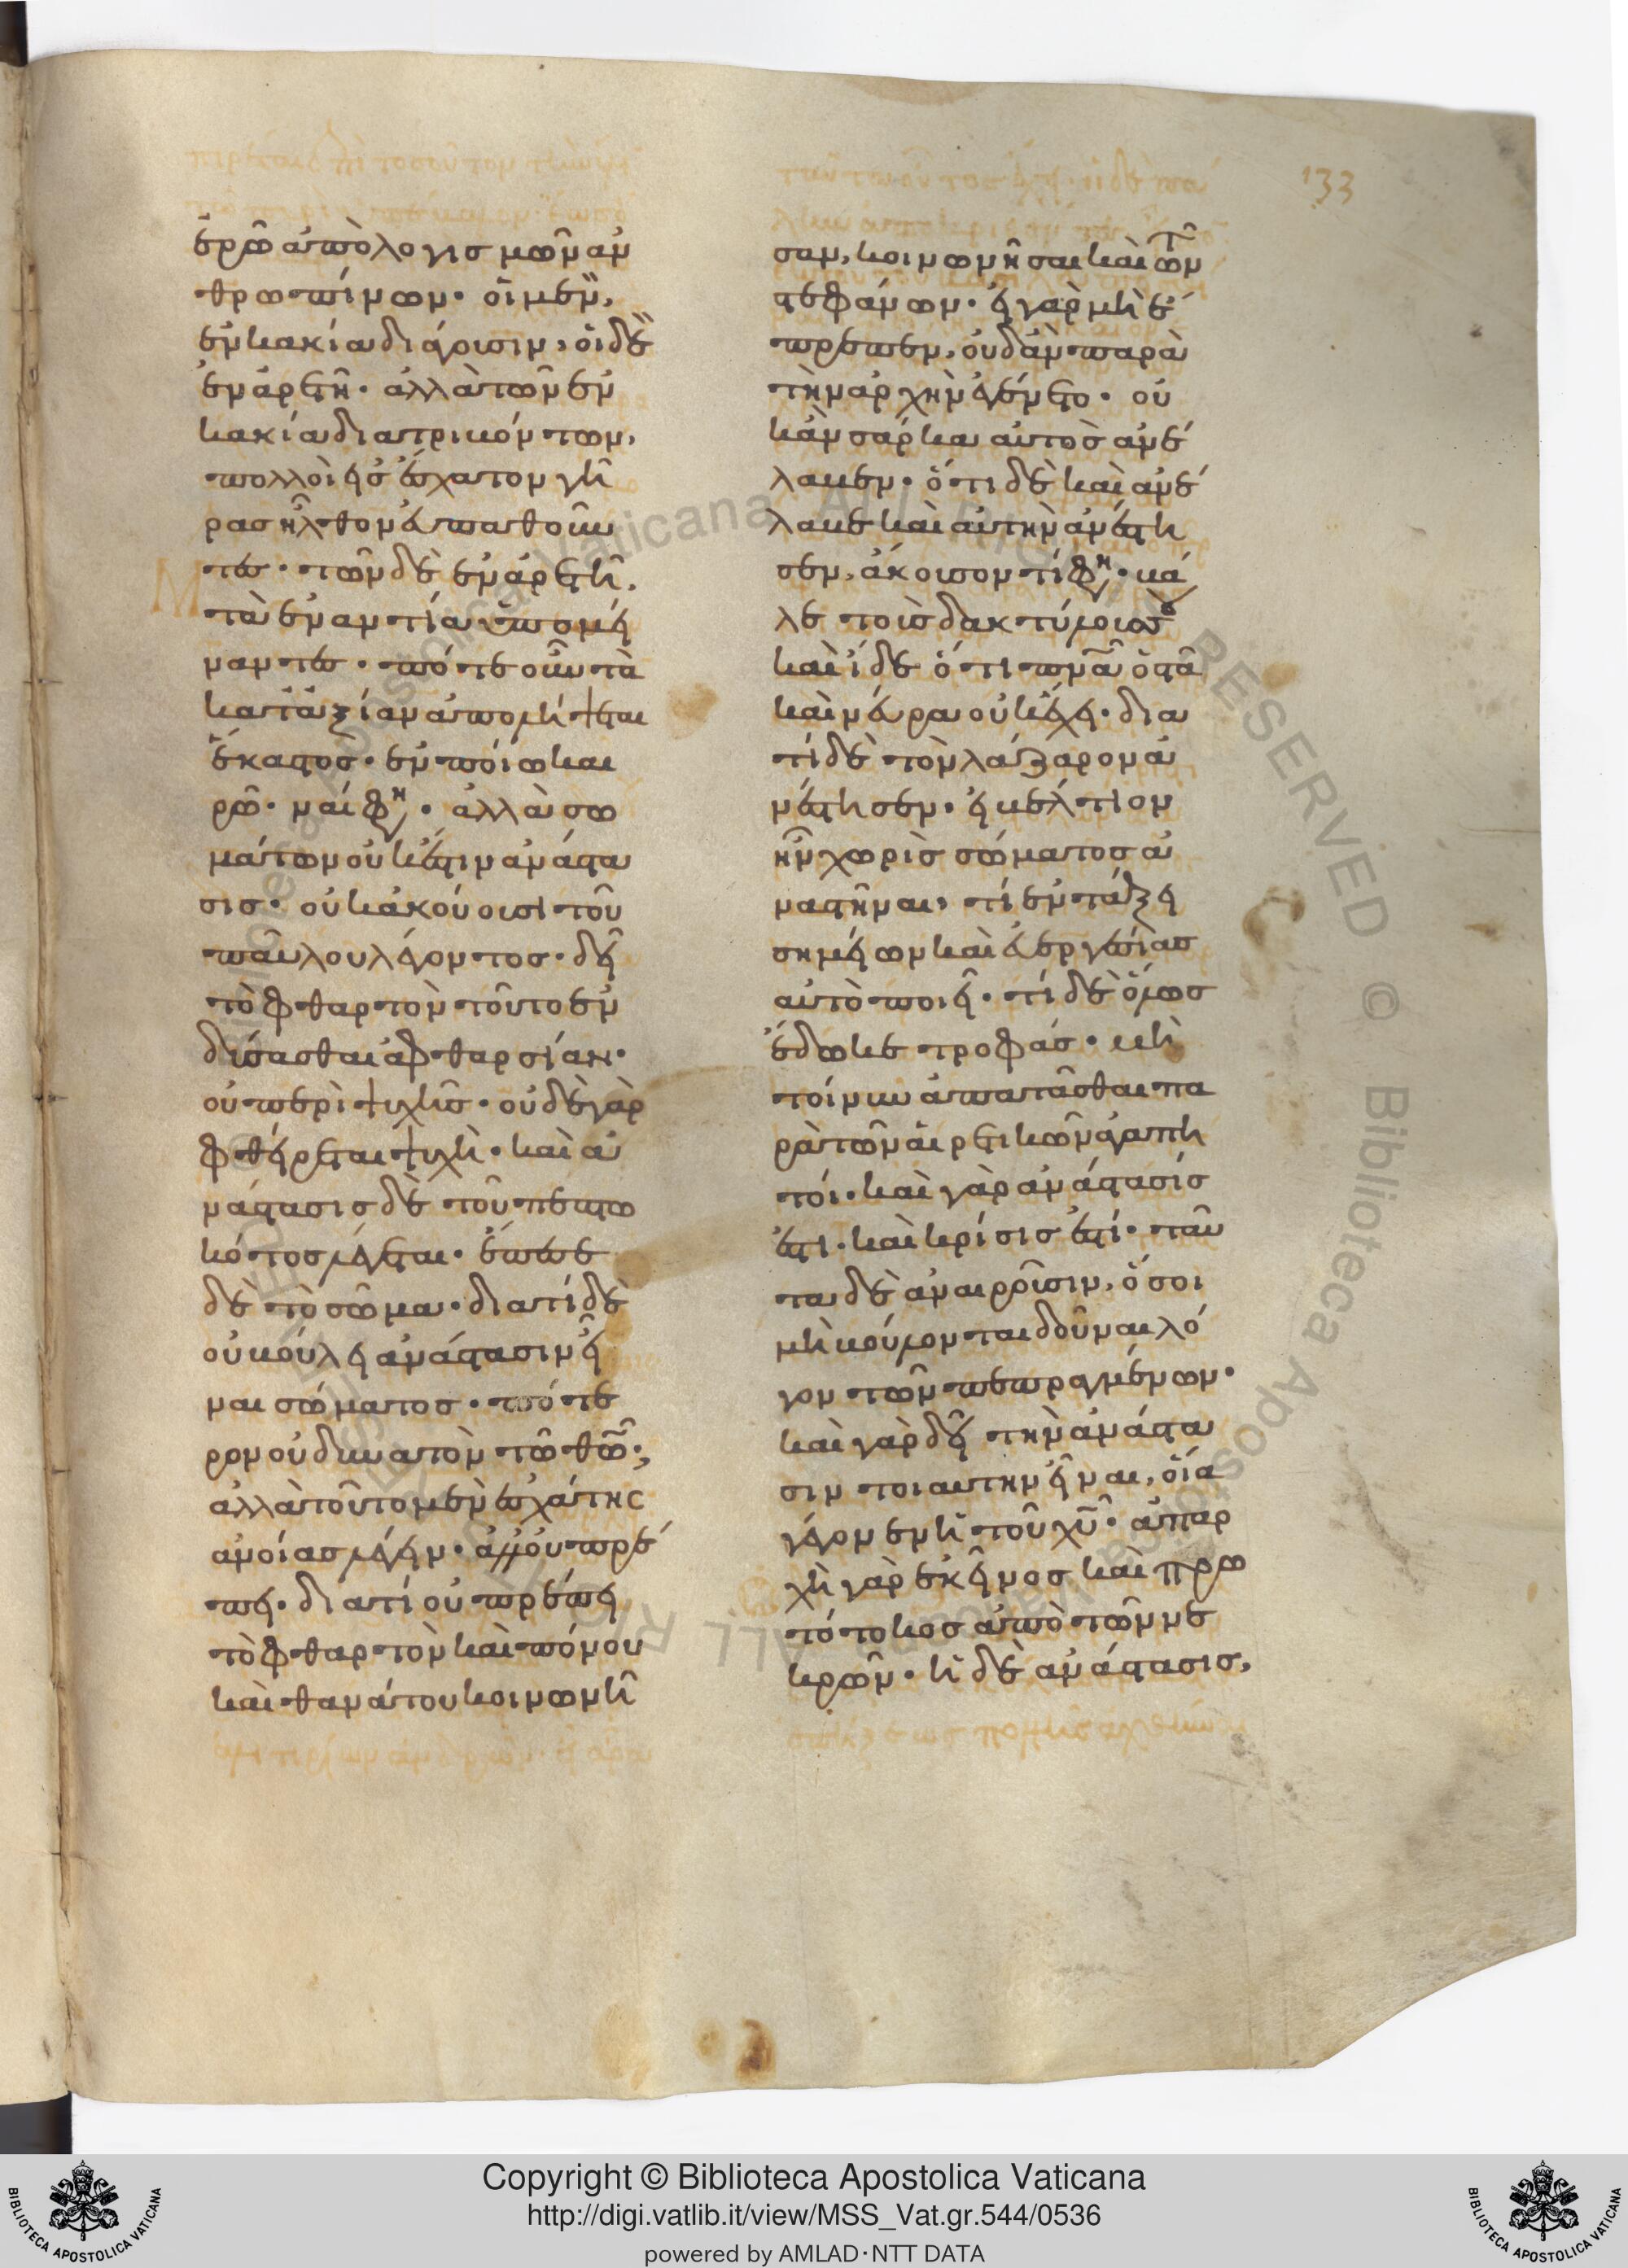 133
ἐρῶ ἀπὸ λογισμῶν ἀν
θρωπίνων· οἱ μὲν,
ἐν κακία διάγουσιν, οἱ δὲ
ἐν ἀρετῆ· ἀλλὰ τῶν ἐν
κακία διατριβόντων,
πολλοὶ εἰς ἔσχατον γῆ
ρας ἦλθον εὐπαθοῦν
τες· τῶν δὲ ἐν ἀρετῆ,
τὰ ἐναντία ὑπομεί
ναντες· πότε οὖν τὰ
κατ' ἀξίαν ἀπολήψεται
ἕκαστος· ἐν ποίω και
ρῶ· ναί φη· ἀλλὰ σω
μάτων οὐκ ἔστιν ἀνάστα
σις· οὐκ ἀκούουσι τοῦ
παύλου λέγοντος· δεῖ
τὸ φθαρτὸν τοῦτο ἐν
δύσασθαι ἀφθαρσίαν·
οὐ περὶ ψυχῆς· οὐδὲ γὰρ
φθείρεται ψυχὴ· καὶ ἀ
νάστασις δὲ τοῦ πεπτω
κότος λέγεται· ἔπεσε
δὲ τὸ σῶμα· διατί δὲ
οὐ βούλει ἀνάστασιν εἶ
ναι σώματος· πότε
ρον οὐ δυνατὸν τῶ θῶ·;
ἀλλὰ τοῦτο μὲν ἐσχάτης
ἀνοίας λέγειν· ἀλλ' οὐ πρέ
πει· διατί οὐ πρέπει
τὸ φθαρτὸν καὶ πόνου
καὶ θανάτου κοινωνῆ
σαν, κοινωνῆσαι καὶ τῶν
στεφάνων· εἰ γὰρ μὴ ἔ
πρεπεν, οὐδ' ἂν παρὰ
τὴν ἀρχὴν ἐγένετο· οὐ
κἂν σάρκα αὐτὸς ἀνέ
λαβεν· ὅτι δὲ καὶ ἀνέ
λαβε καὶ αὐτὴν ἀνέστη
σεν, ἄκουσον τί φη· βά
λε τοὺς δακτύλους
καὶ ἴδε ὅτι πνα ὀστᾶ
καὶ νεῦρα οὐκ ἔχει· δια
τί δὲ τὸν λάζαρον ἀ
νέστησεν· εἰ βέλτιον
ἦν χωρὶς σώματος ἀ
ναστῆναι, τί ἐν τάξει
σημείων καὶ εὐεργεσίας
αὐτὸ ποιεῖ· τί δὲ ὅλως
ἔδωκε τροφάς· μὴ
τοίνυν ἀπατᾶσθαι πα
ρὰ τῶν αἱρετικῶν ἀγαπη
τοί· καὶ γὰρ ἀνάστασίς
ἐστι· καὶ κρίσις ἐστί· ταῦ
τα δὲ ἀναιροῦσιν, ὅσοι
μὴ βούλονται δοῦναι λό
γον τῶν πεπραγμένων·
καὶ γὰρ δεῖ τὴν ἀνάστα
σιν τοιαύτην εἶναι, οἵα
γέγονεν ἡ τοῦ χυ· ἀπαρ
χὴ γὰρ ἐκεῖνος καὶ πρω
τότοκος ἀπὸ τῶν νε
κρῶν· ἡ δὲ ἀνάστασις,
Copyright © Biblioteca Apostolica Vaticana
http://digi.vatlib.it/view/MSS_Vat.gr.544/0536
powered by AMLAD·NTT DATA
BIBLIOTECA APOSTOLICA VATICANA
BIBLIOTECA APOSTOLICA VATICANA